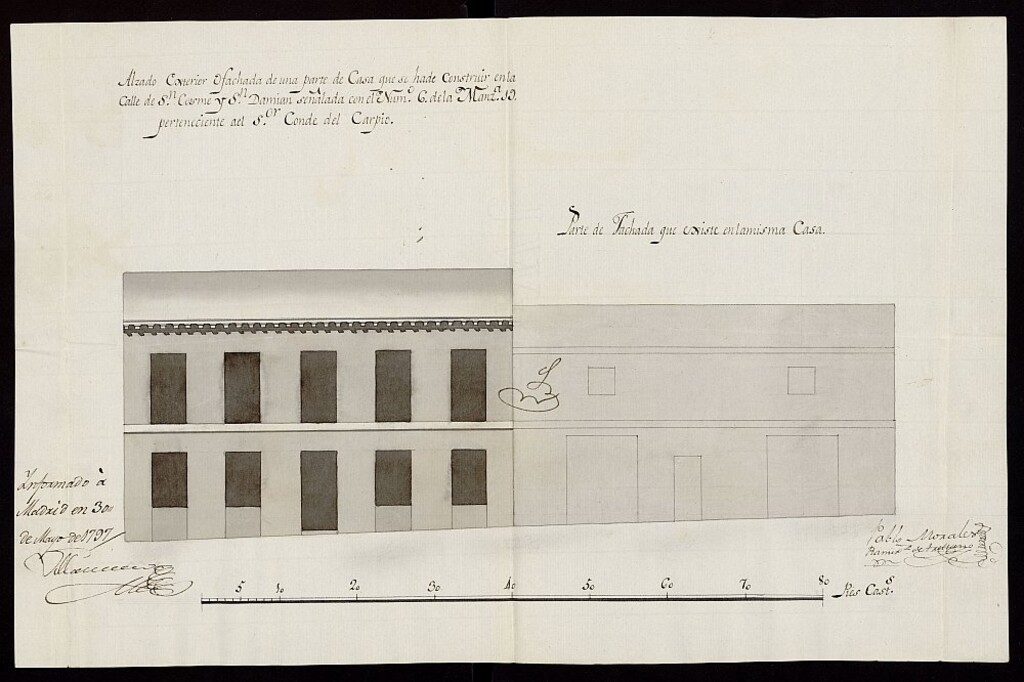 Alzado Exterior ó fachada de una parte de Casa que se hade Construir en la
Calle de S.n Cosme y S.n Damian señalada con el Num.o 6. de la Manz.a 19.
perteneciente ael S.or Conde del Carpio.
Parte de Fachada que existe enlamisma Casa.
Informado à
Madrid en 30
de Mayo de 1797
Pablo Morales
5 10 20 30 40 50 60 70 80 Pies Cast.s